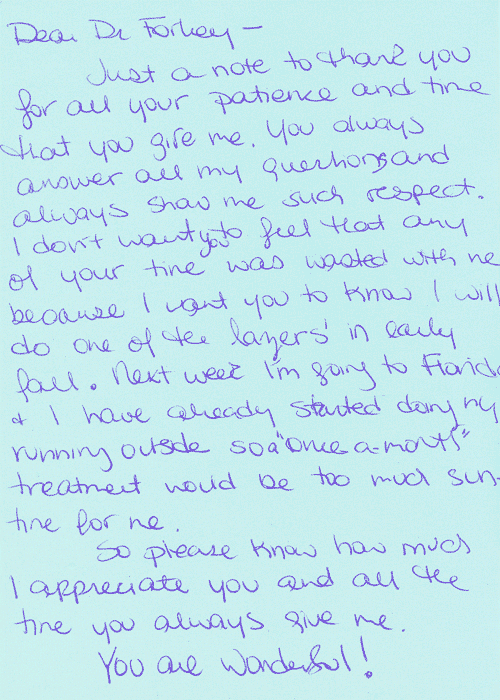 Dear Dr Forkey —
Just a note to thank you
for all your patience and time
that you give me. You always
answer all my questions and
always show me such respect.
I don't want you to feel that any
of your time was wasted with me
because I want you to know I will
do one of the lazers' in early
fall. Next week I'm going to Florida
& I have already started doing my
running outside so a "once-a-month"
treatment would be too much sun-
time for me.
So please know how much
I appreciate you and all the
time you always give me.
You are Wonderful!